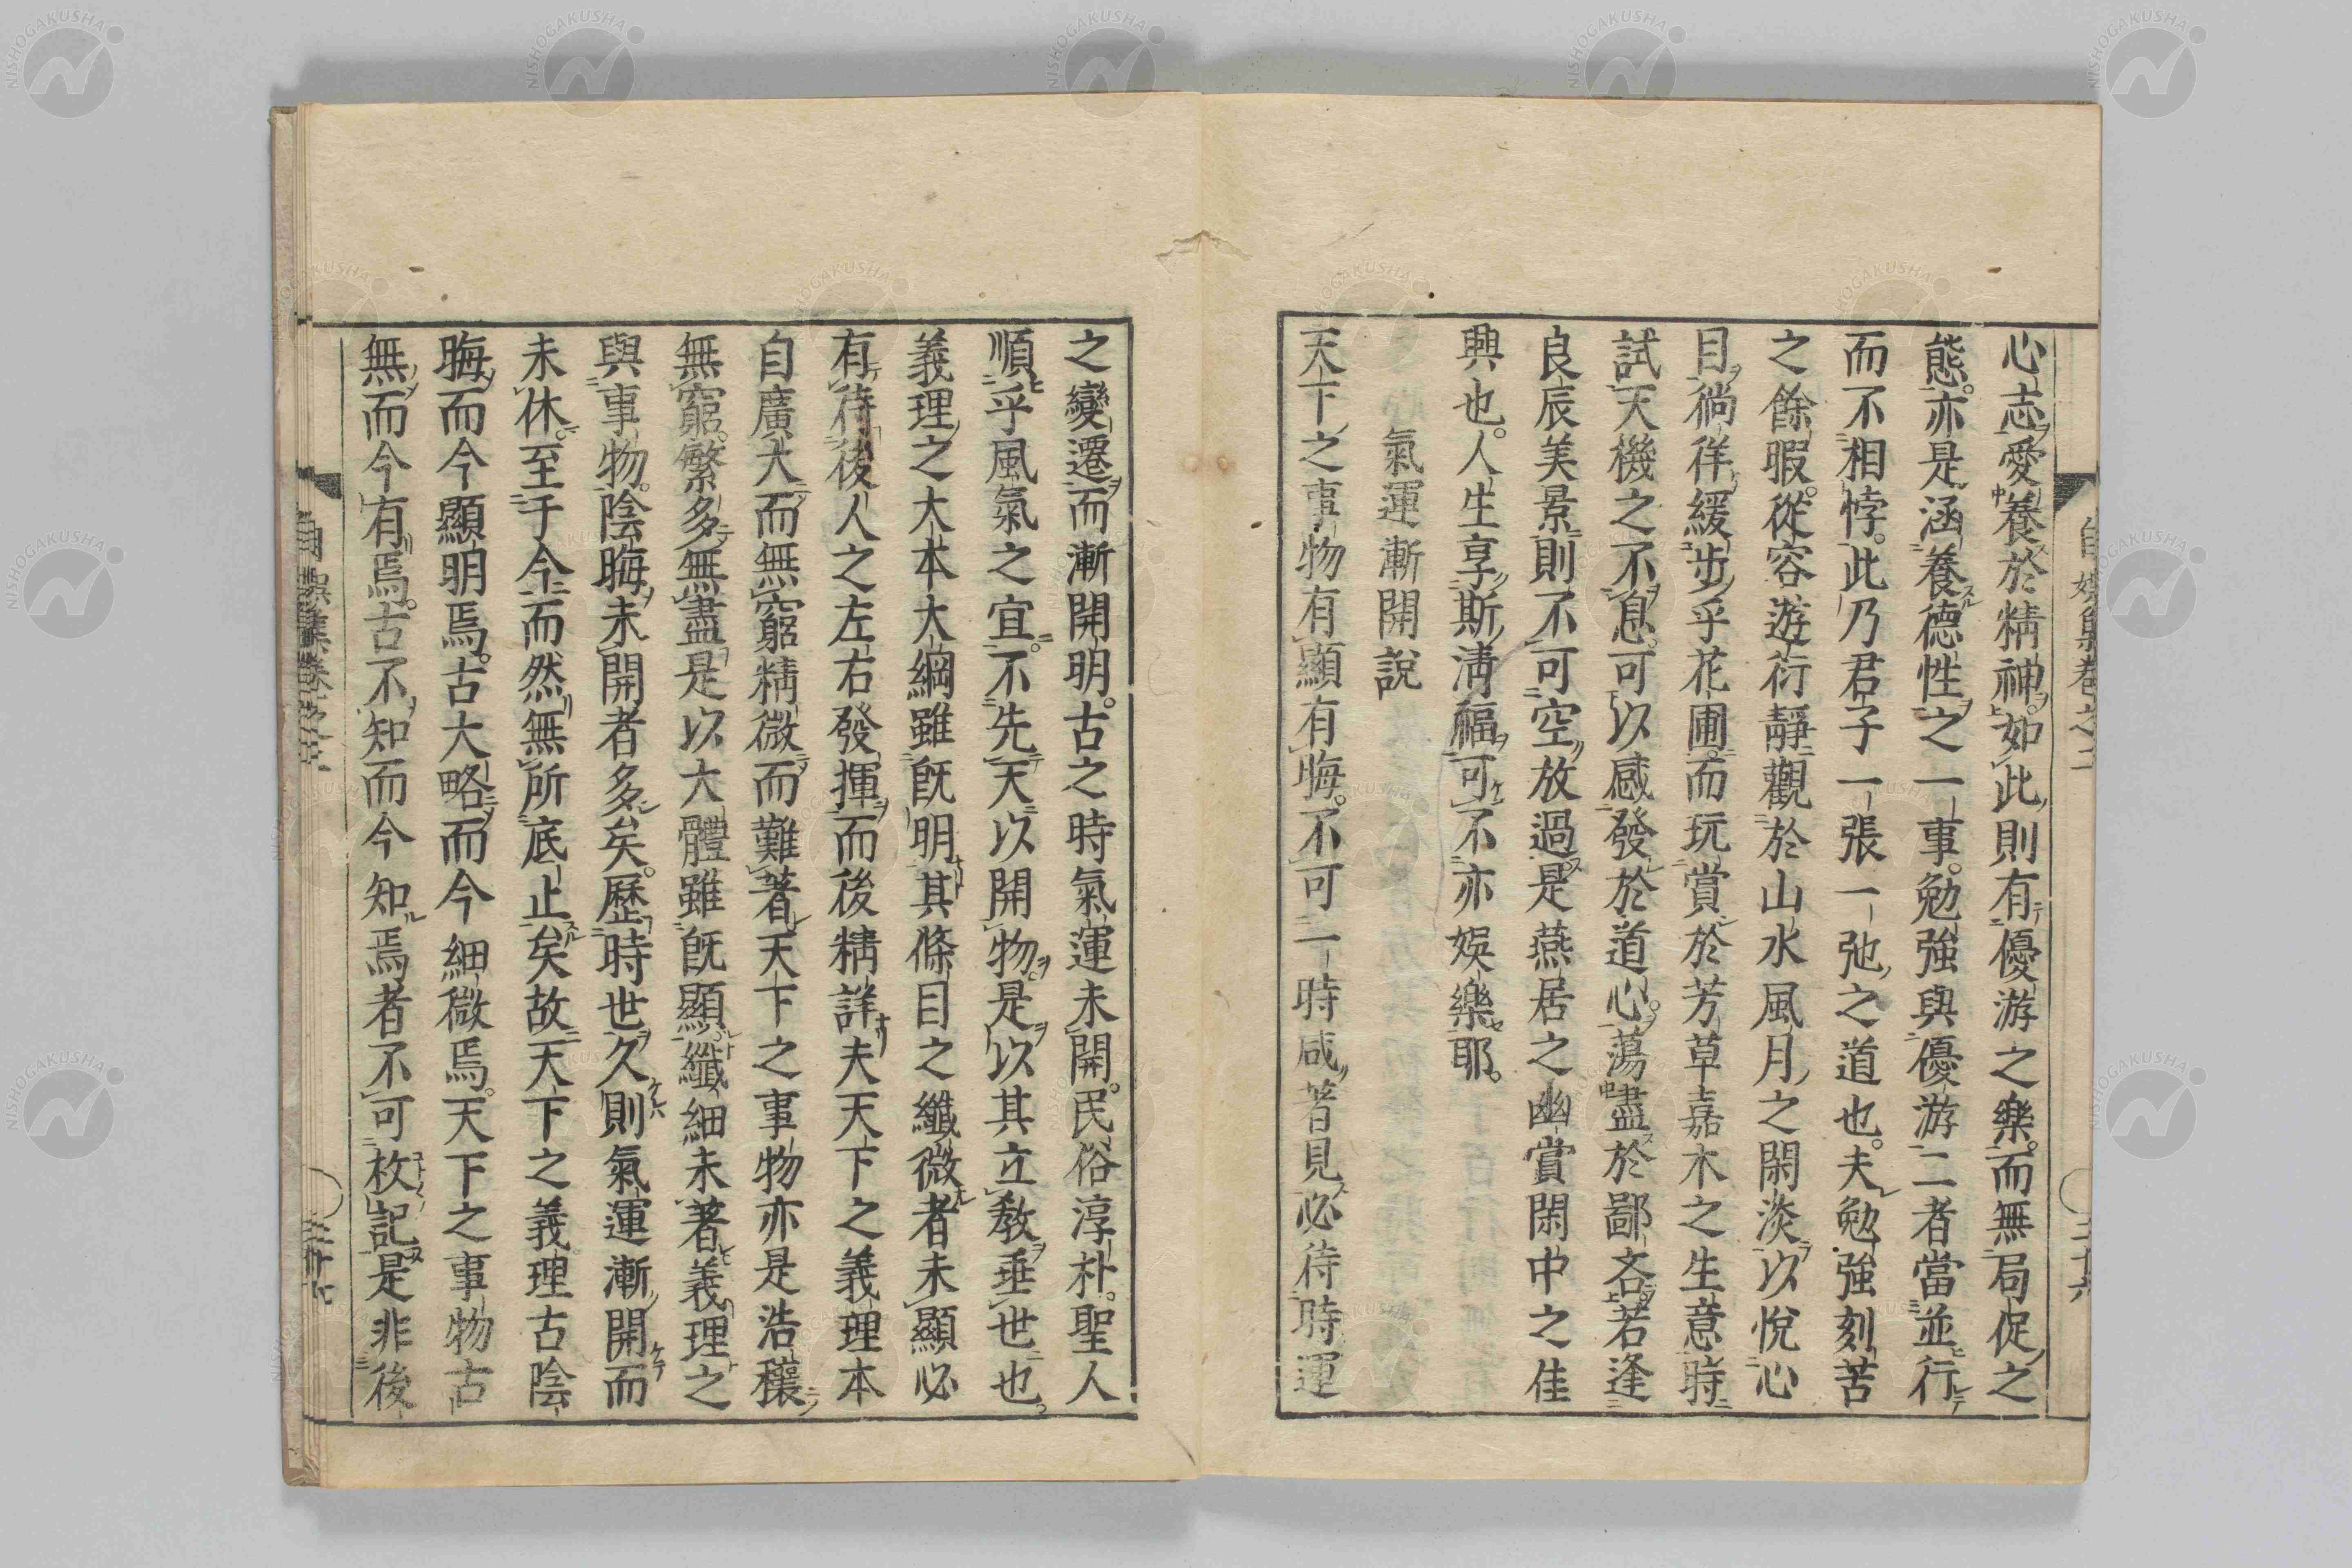 心志愛養於精神。如此則有優游之樂。而無局促之
態。亦是涵養德性之一事。勉強與優游二者當並行
而不相悖。此乃君子一張一弛之道也。夫勉強刻苦
之餘暇。從容遊衍靜觀於山水風月之閑淡以悅心
目徜徉緩步乎花圃而玩賞於芳草嘉木之生意時
試天機之不息。可以感發於道心。蕩盡於鄙吝若逢
良辰美景則不可空放過是燕居之幽賞閑中之佳
興也。人生享斯淸福可不亦娯樂耶。
氣運漸開說
天下之事物有顯有晦。不可一時咸著見必待時運
之變遷而漸開明。古之時氣運未開。民俗淳朴。聖人
順乎風氣之宜。不先天以開物。是以其立敎垂世也
義理之大本大綱雖旣明其條目之纖微者未顯必
有待後人之左右發揮而後精詳夫天下之義理本
自廣大而無窮精微而難著天下之事物亦是浩穰
無窮。繁多無盡是以大體雖旣顯。纖細未著義理之
與事物。陰晦未開者多矣。歷時世久則氣運漸開而
未休。至于今而然無所底止矣故天下之義理古陰
晦而今顯明焉。古大略而今細微焉。天下之事物古
無而今有焉。古不知而今知焉者不可枚記是非後
自娯集卷之三
三十七
三十六